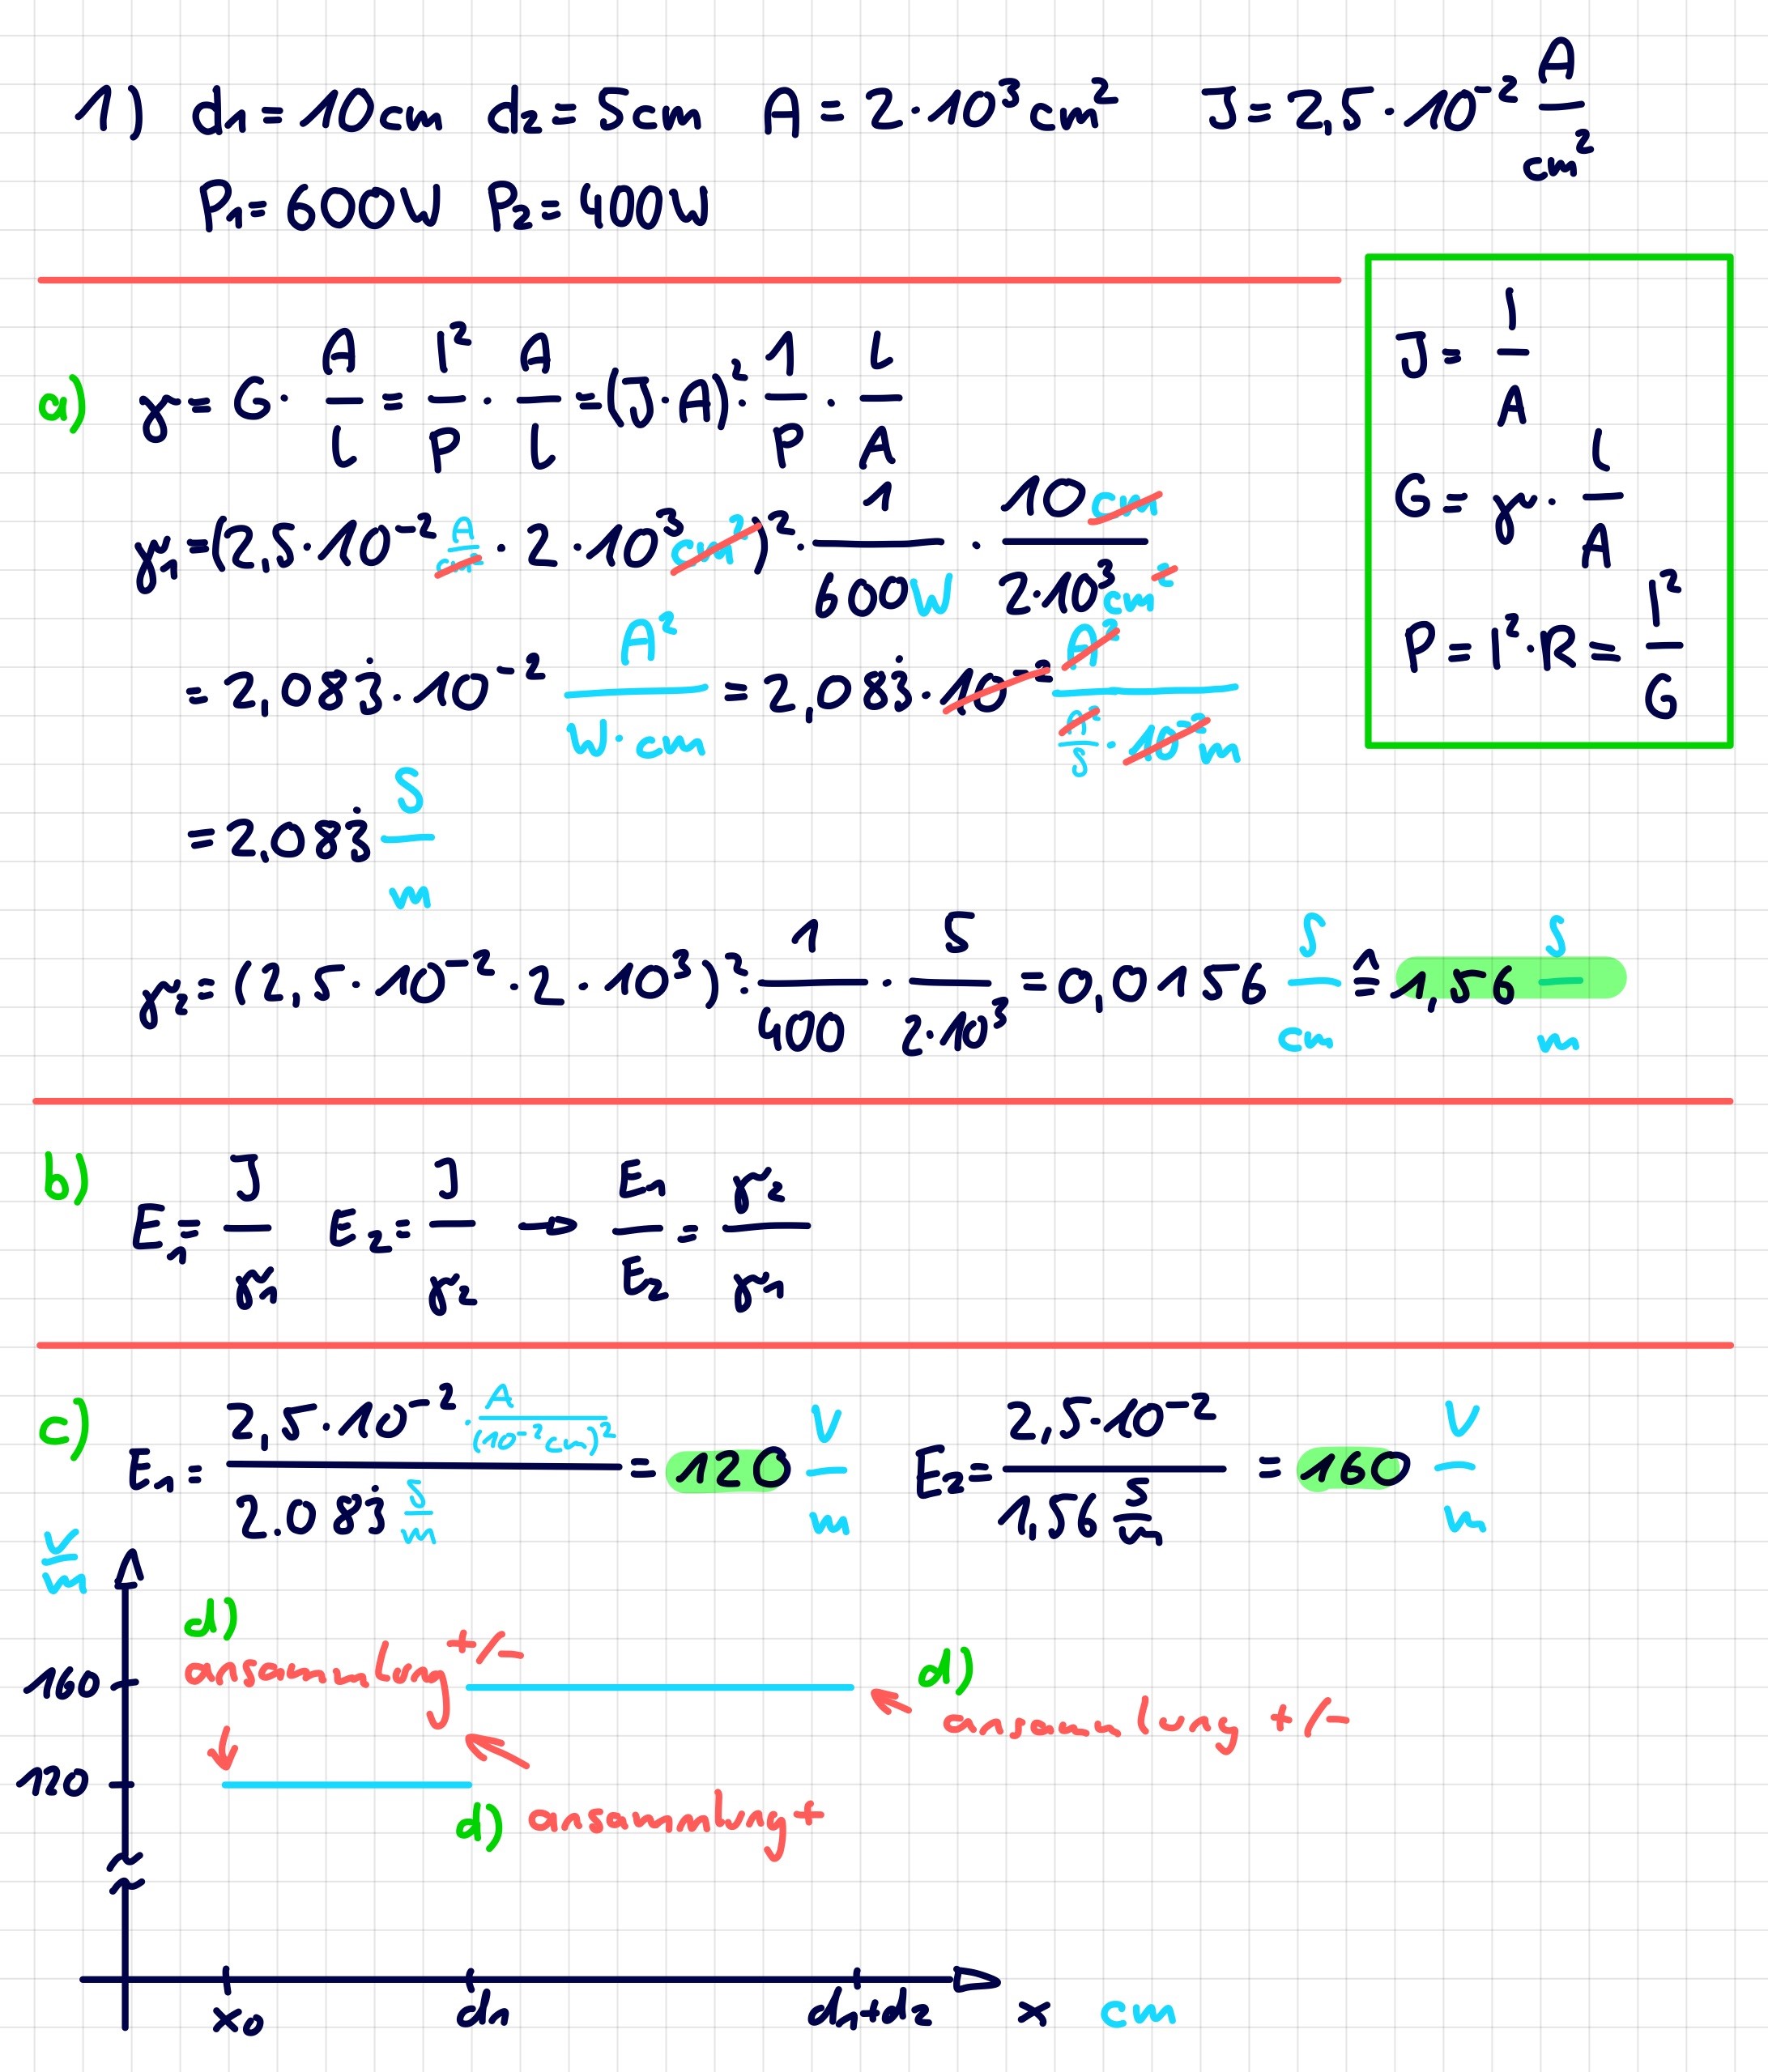 1) d₁ = 10cm d₂ = 5cm A = 2·10³cm² J = 2,5·10⁻² A/cm²
P₁ = 600W P₂ = 400W
a) γ = G · A/l = I²/P · A/l = (J·A)² · 1/P · l/A
γ₁ = (2,5·10⁻² A/cm² · 2·10³ cm²)² · 1/600W · 10cm/2·10³cm²
= 2,083̇·10⁻² A²/W·cm = 2,083̇·10⁻² A²/(A²/S · 10⁻²m)
= 2.083̇ S/m
γ₂ = (2,5·10⁻²·2·10³)² · 1/400 · 5/2·10³ = 0,0156 S/cm ≙ 1,56 S/m
J = I/A
G = γ · l/A
P = I²·R = I²/G
b) E₁ = J/γ₁ E₂ = J/γ₂ → E₁/E₂ = γ₂/γ₁
c) E₁ = 2,5·10⁻² · A/(10⁻²cm)² / 2.083̇ S/m = 120 V/m E₂ = 2,5·10⁻² / 1,56 S/m = 160 V/m
V/m
d)
ansammlung +/-
160
d)
ansammlung +/-
120
d) ansammlung +
x₀ d₁ d₁+d₂ x cm